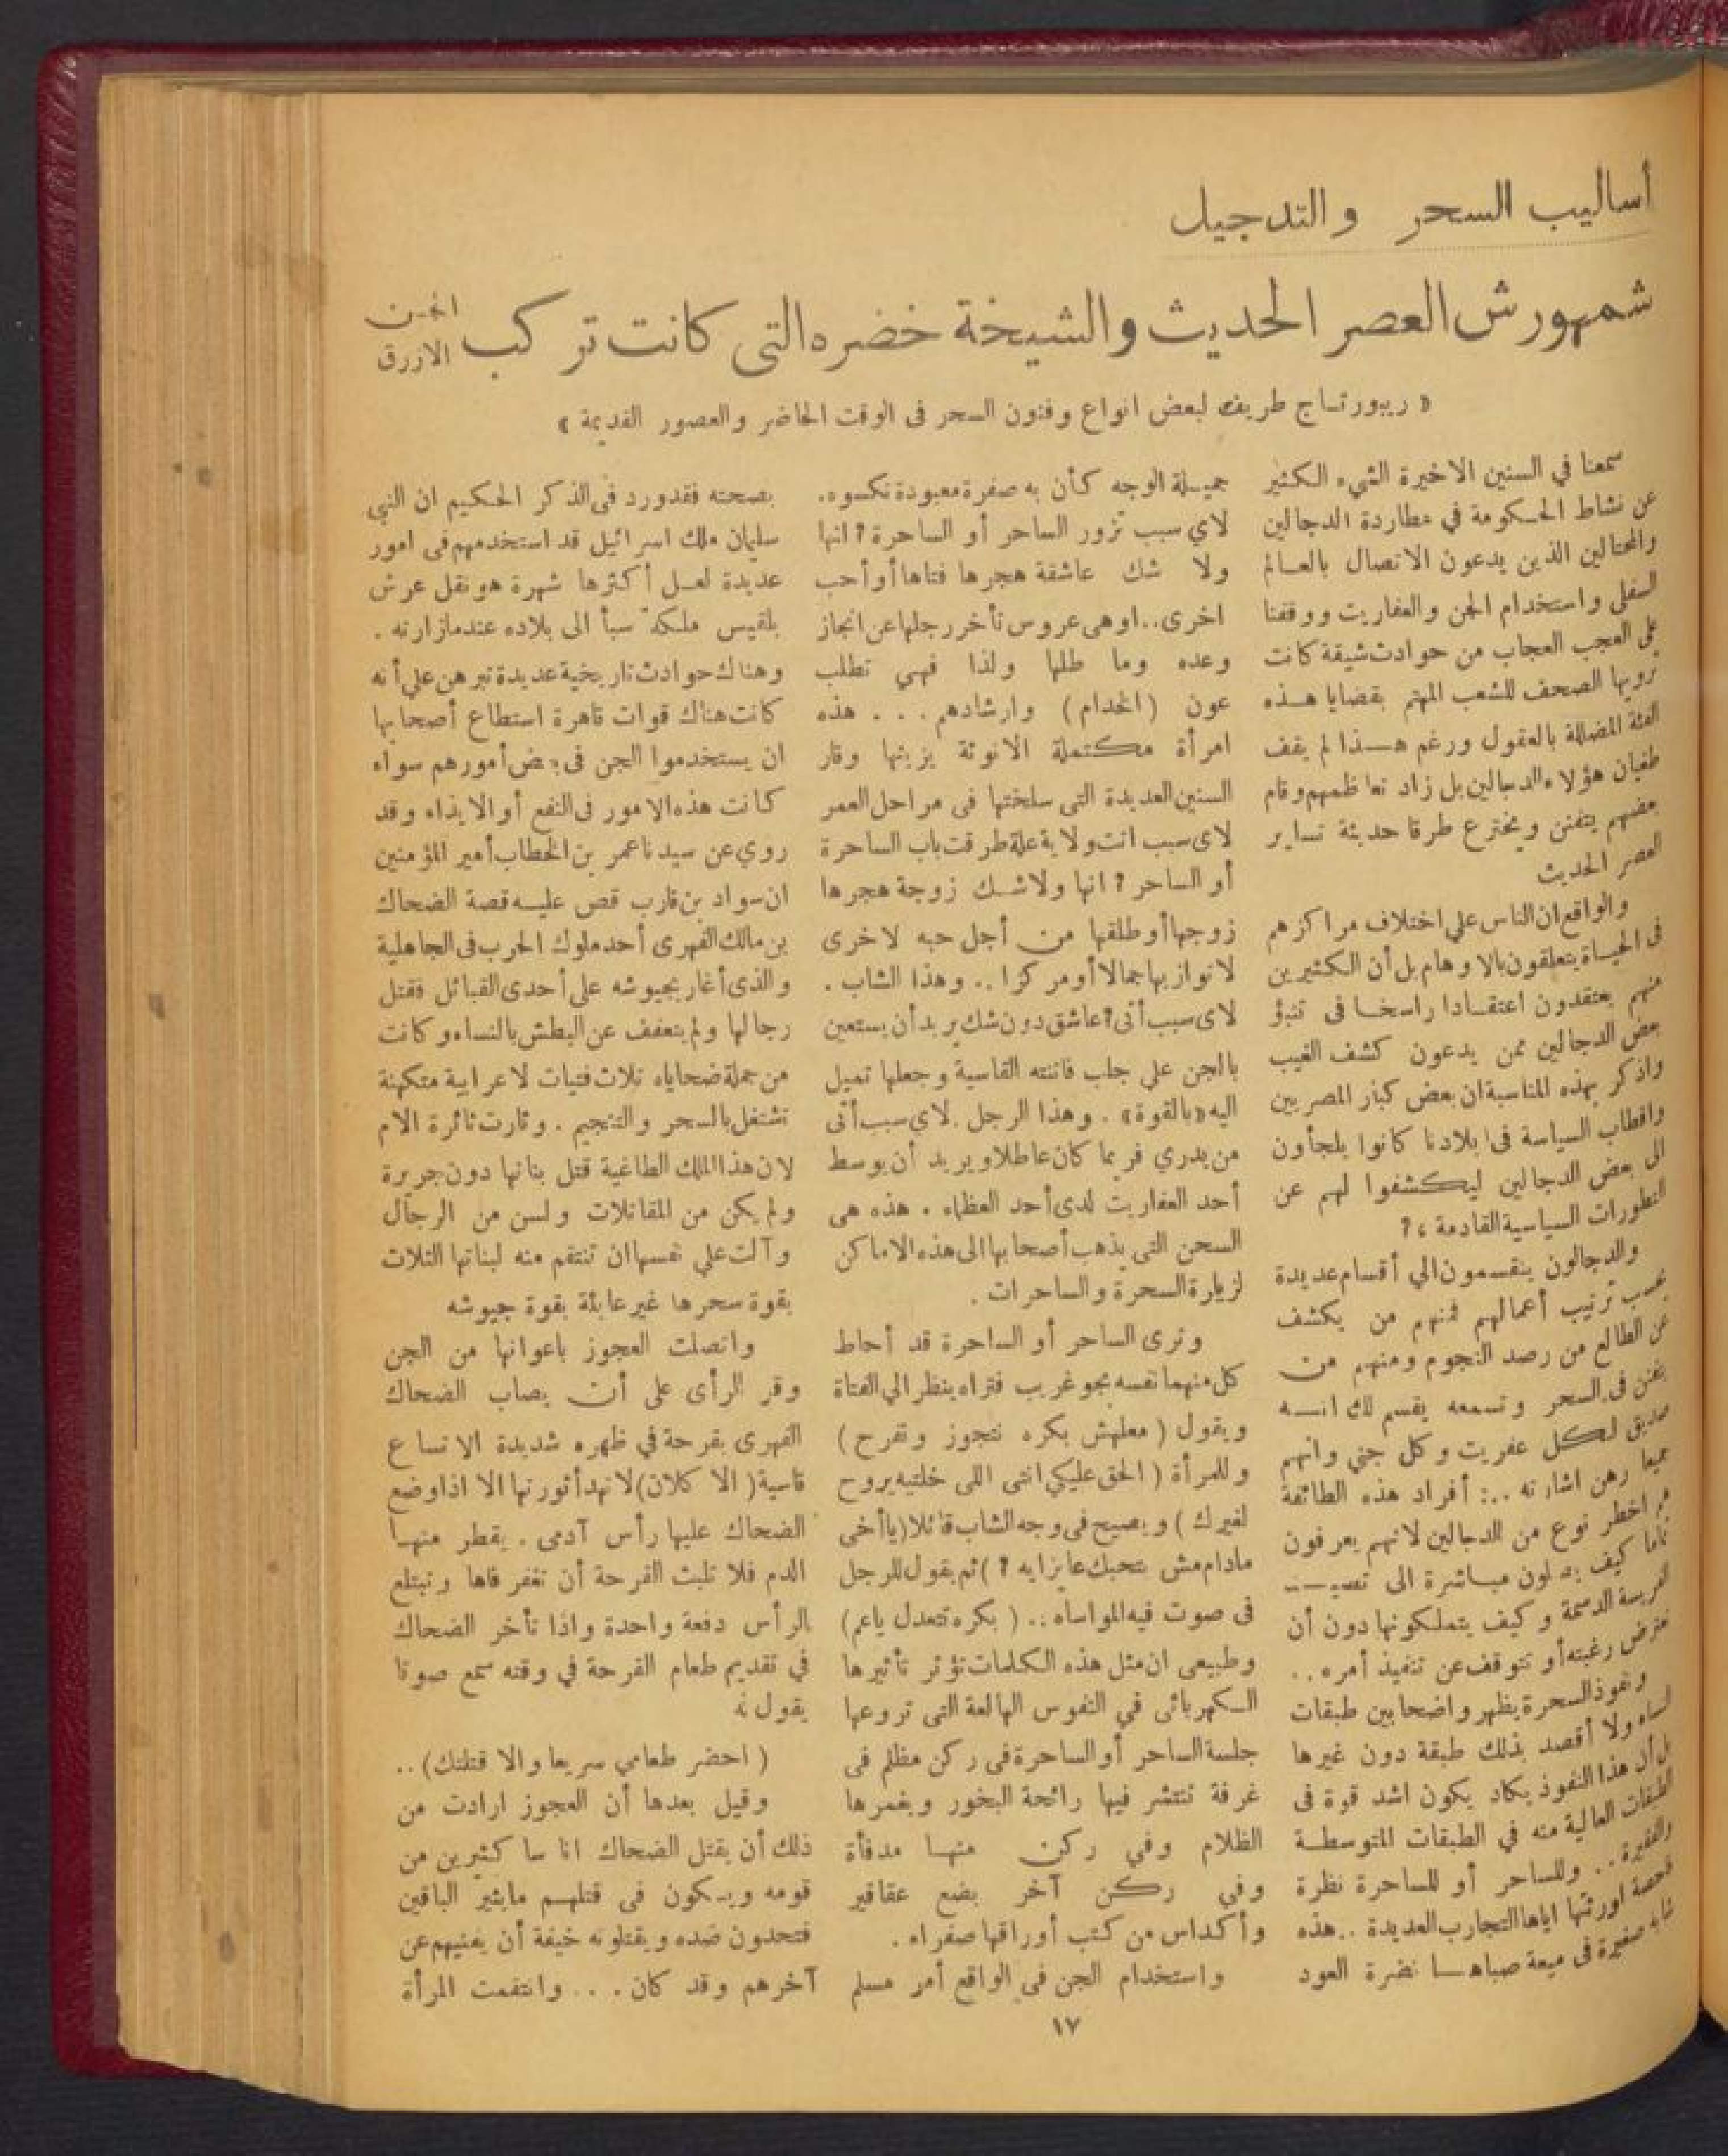 أساليب السحر والتدجيل
شمهورش العصر الحديث والشيخة خضره التى كانت تركب الجن الازرق
« ريبورتاج طريف لبعض انواع وفنون السحر فى الوقت الحاضر والعصور القديمة »
سمعنا في السنين الاخيرة الشيء الكثير
عن نشاط الحكومة في مطاردة الدجالين
والمحتالين الذين يدعون الاتصال بالعالم
السفلى واستخدام الجن والعفاريت ووقفنا
على العجب العجاب من حوادث شيقة كانت
ترويها الصحف للشعب المهتم بقضايا هذه
الفئة المضللة بالعقول ورغم هذا لم يقف
طغيان هؤلاء الدجالين بل زاد تعاظمهم وقام
بعضهم يتفنن ويخترع طرقا حديثة تساير
العصر الحديث
والواقع ان الناس علي اختلاف مراكزهم
فى الحياة يتعلقون بالاوهام بل أن الكثيرين
منهم يعتقدون اعتقادا راسخا فى تنبؤ
بعض الدجالين ممن يدعون كشف الغيب
واذكر بهذه المناسبة ان بعض كبار المصريين
واقطاب السياسة فى بلادنا كانوا يلجأون
الى بعض الدجالين ليكشفوا لهم عن
التطورات السياسية القادمة ،؟
والدجالون ينقسمون الي أقسام عديدة
بحسب ترتيب أعمالهم فمنهم من يكشف
عن الطالع من رصد النجوم ومنهم من
يفنن فى السحر وتسمعه يقسم لك انه
صديق لكل عفريت وكل جني وانهم
جميعا رهن اشارته ..: أفراد هذه الطائفة
هم اخطر نوع من الدجالين لانهم يعرفون
تماما كيف يصلون مباشرة الى نفسية
الفريسة الدسمة وكيف يتملكونها دون أن
تعترض رغبته أو تتوقف عن تنفيذ أمره ..
ونفوذ السحرة يظهر واضحا بين طبقات
النساء ولا أقصد بذلك طبقة دون غيرها
بل أن هذا النفوذ يكاد يكون اشد قوة فى
الطبقات العالية منه في الطبقات المتوسطة
والفقيرة .. وللساحر أو للساحرة نظرة
فحصة اورثتها اياها التجارب العديدة .. هذه
شابه صغيرة فى ميعة صباها نضرة العود
جميلة الوجه كأن به صفرة معبودة تكسوه .
لاي سبب تزور الساحر أو الساحرة ؟ انها
ولا شك عاشقة هجرها فتاها أو أحب
اخرى .. او هى عروس تأخر رجلها عن انجاز
وعده وما طلها ولذا فهي تطلب
عون (الخدام) وارشادهم . . . هذه
امرأة مكتملة الانوثة يزينها وقار
السنين العديدة التى سلختها فى مراحل العمر
لاى سبب انت ولاية علة طرقت باب الساحرة
أو الساحر ؟ انها ولا شك زوجة هجرها
زوجها أو طلقها من أجل حبه لاخرى
لا توازيها جمالا أو مركزا .. وهذا الشاب .
لاى سبب أتى ؟ عاشق دون شك يريد أن يستعين
بالجن علي جلب فاتنته القاسية وجعلها تميل
اليه «بالقوة» . وهذا الرجل . لاي سبب أتى
من يدري فربما كان عاطلا ويريد أن يوسط
أحد العفاريت لدى أحد العظاء . هذه هى
السحن التى يذهب أصحابها الى هذه الاماكن
لزيارة السحرة والساحرات .
وترى الساحر أو الساحرة قد أحاط
كل منهما نفسه بجو غريب فتراه ينظر الي الفتاة
ويقول ( معلهش بكره نتجوز وتفرح )
وللمرأة ( الحق عليكي انتى اللى خلتيه يروح
لغيرك ) ويصيح فى وجه الشاب قائلا (يا أخى
مادام مش بتحبك عايز ايه ؟ ) ثم يقول للرجل
فى صوت فيه المواساه .. ( بكره تتعدل ياعم)
وطبيعى ان مثل هذه الكلمات تؤثر تأثيرها
الكهربائى في النفوس الهالعة التى تروعها
جلسة الساحر أو الساحرة فى ركن مظلم فى
غرفة تنتشر فيها رائحة البخور ويغمرها
الظلام وفي ركن منها مدفأة
وفي ركن آخر بضع عقاقير
وأكداس من كتب أوراقها صفراء .
واستخدام الجن في الواقع أمر مسلم
بصحته فقد ورد فى الذكر الحكيم ان النبى
سليمان ملك اسرائيل قد استخدمهم فى امور
عديدة لعل أكثرها شهرة هو نقل عرش
بلقيس ملكة سبأ الى بلاده عندما زارته .
وهناك حوادث تاريخية عديدة تبرهن علي أنه
كانت هناك قوات قاهرة استطاع أصحابها
ان يستخدموا الجن فى بعض أمورهم سواء
كانت هذه الامور فى النفع أو الايذاء وقد
روي عن سيدنا عمر بن الخطاب أمير المؤمنين
ان سواد بن قارب قص عليه قصة الضحاك
بن مالك الفهرى أحد ملوك الحرب فى الجاهلية
والذى أغار بجيوشه علي أحدى القبائل فقتل
رجالها ولم يتعفف عن البطش بالنساء وكانت
من جملة ضحاياه ثلاث فتيات لاعرابية متكهنة
تشتغل بالسحر والتنجيم . وثارت ثائرة الام
لان هذا الملك الطاغية قتل بناتها دون جريرة
ولم يكن من المقاتلات ولسن من الرجال
وآلت علي نفسها ان تنتقم منه لبناتها الثلاث
بقوة سحرها غير عابئة بقوة جيوشه
واتصلت العجوز باعوانها من الجن
وقر الرأى على أن يصاب الضحاك
الفهرى بقرحة في ظهره شديدة الاتساع
قاسية ( الا كلان) لا تهدأ ثورتها الا اذا وضع
الضحاك عليها رأس آدمى . يقطر منها
الدم فلا تلبث القرحة أن تغفر فاها وتبتلع
الرأس دفعة واحدة واذا تأخر الضحاك
في تقديم طعام القرحة في وقته سمع صوتا
يقول له
( احضر طعامي سريعا والا قتلتك) ..
وقيل بعدها أن العجوز ارادت من
ذلك أن يقتل الضحاك انا سا كثيرين من
قومه ويكون فى قتلهم ما يثير الباقين
فتحدون ضده ويقتلونه خيفة أن يفنيهم عن
آخرهم وقد كان . . . وانتقمت المرأة
١٧